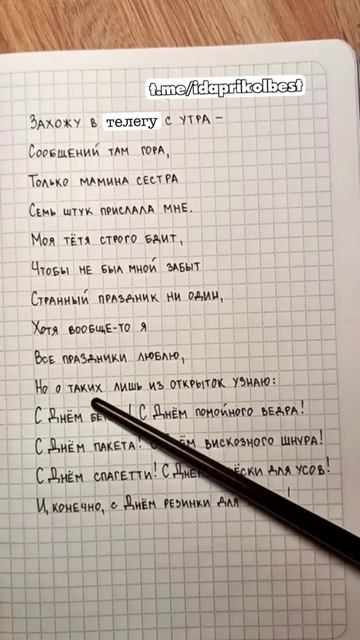 t.me/idaprikolbest
Захожу в телегу с утра –
Сообщений там гора,
Только мамина сестра
Семь штук прислала мне.
Моя тётя строго бдит,
Чтобы не был мной забыт
Странный праздник ни один,
Хотя вообще-то я
Все праздники люблю,
Но о таких лишь из открыток узнаю:
С Днём ! С Днём помойного ведра!
С Днём пакета! вискозного шнура!
С Днём спагетти! С для усов!
И, конечно, с Днём резинки для !